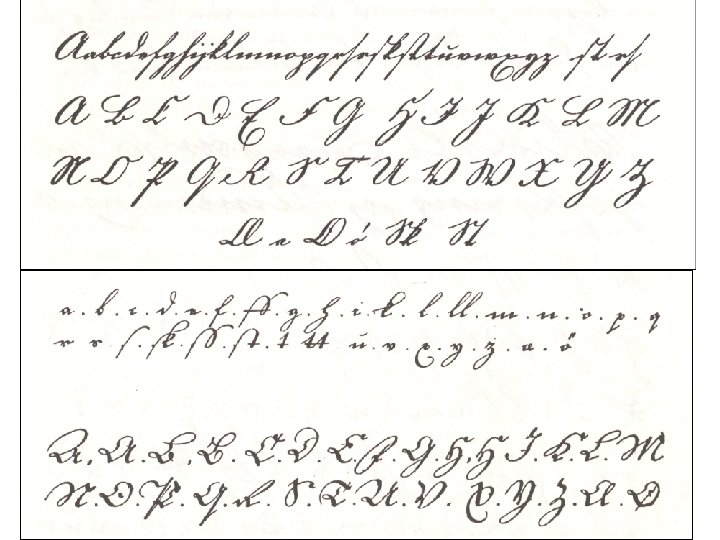 Aabcdefghijklmnopqrſsſkſttuvwxyz ſt rſ
A B C D E F G H I J K L M
N O P Q R S T U V W X Y Z
Sk St
a. b. c. d. e. f. ff. g. h. i. k. l. ll. m. n. o. p. q
r r. ſ. ſk. ſſ. ſt. t tt u. v. x. y. z. a. ö
A. A. B. B. C. D. E F. G. H. H I. K. L. M
N. O. P. Q. R. S. T. U. V. X. Y. Z.